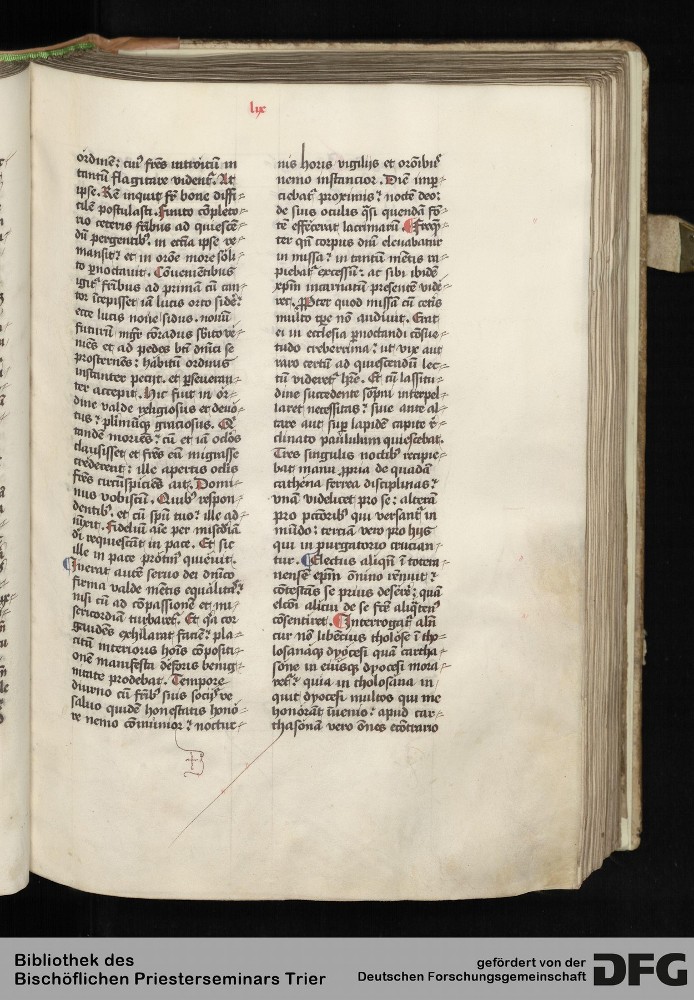 lix
ordinē: cuiꝰ fr̄es introitū in
tantū flagitare videntʳ. At
ipse. Rē inquit fr̄ bone diffi
cilē postulasti. Finito cōpleto
rio ceteris fr̄ibus ad quiescē
dū pergentibꝰ. in ecc̄ia ipse re
mansit: et in orōne more soli
to ꝑnoctauit. Conuenientibus
igitʳ fr̄ibus ad primā cū can
tor īcepisset iā lucis orto sidē:
ecce lucis noue sidus. nouū
futurū mgr̄ cōradus sb̄ito ve
niēs et ad pedes bt̄i dn̄ici se
prosternēs: habitū ordinis
instanter petijt. et ꝑseueran
ter accepit. Hic fuit in or
dine valde religiosus et deuo
tus: graciosus. Qͥ
tandē moriēs: cū et iā oc̄los
clausisset et fr̄es eū migrasse
crederent: ille apertis oc̄lis
fr̄es circūspiciēs ait. Domi
nus vobiscū. Quibꝰ respon
dentibꝰ. et cū sp̄u tuo: ille ad
iūxit. Fidelium aīe per mīsc̄diā
dī requiescāt in pace. Et sic
ille in pace quieuit.
Inerat autē seruo dei dn̄ico
firma valde mētis equalitas:
nisi cū ad cōpassionē et mi
sericordiā turbaretʳ. Et qͣ cor
gaudēs exhilarat faciē: pla
citū interioris hoīs cōpositi
onē manifesta deforis benig
nitate prodebat. Tempore
diurno cū fr̄ibꝰ siue socijs re
saluo quidē honestatis hono
re nemo cōmunior: noctur
nis horis vigilijs et orōibus
nemo instancior. Diē impe
ciebatʳ proximis: noctē deo:
de suis oculis qͣsi quendā fō
tē effecerat lacrimarū. Freqn̄
ter qn̄ corpus dn̄i eleuabatur
in missa: in tantū mētis ra
piebatʳ excessū: ac sibi ibidē
xp̄m incarnatū presentē vide
ret. Propter quod missā cū cetis
multo tp̄e nō audiuit. Erat
ei in ecclesia ꝑnoctandi cōsue
tudo creberrima: ut vix aut
raro certū ad quiescendū lec
tū videretʳ hr̄e. Et cū lassitu
dine succedente sōpni interpel
laret necessitas: siue ante al
tare aut suꝑ lapidē capite re
clinato paululum quiescebat.
Tres singulis noctibꝰ recipie
bat manu ꝓpria de quadā
cathena ferrea disciplinas:
vnā videlicet pro se: alterā
pro pcc̄oribꝰ qui versantʳ in
mūdo: terciā vero pro hijs
qui in purgatorio crucian
tur. Electus aliqn̄ ī cotem
nensē ep̄m ōnino rēnuit:
cōtestās se prius deserē: quā
elcōi alicui de se fcē aliqͣten
cōsentiret. Interrogatʳ aliqn̄
cur nō libēcius tholose ī tho
losanaqꝫ dyocesi quā cartha
sone in eiusqꝫ dyocesi mora
retʳ: quia in tholosana in
quit dyocesi multos qui me
honorāt īuenio: apud car
thasonā vero ōnes ecōtrario
Bibliothek des
Bischöflichen Priesterseminars Trier
gefördert von der
Deutschen Forschungsgemeinschaft
DFG